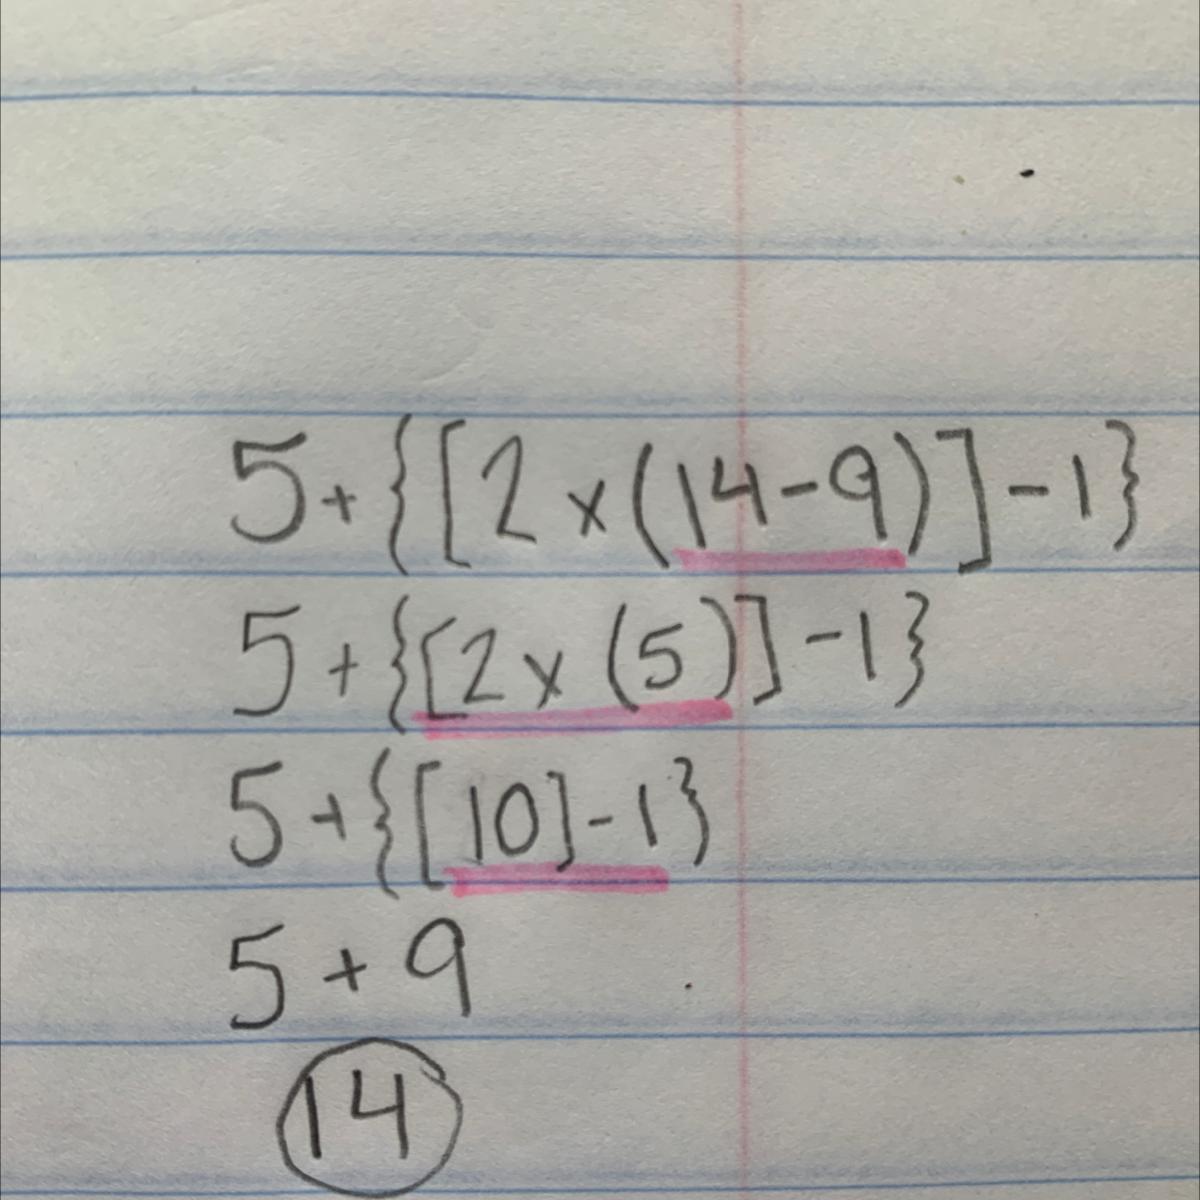 5+{[2×(14-9)]-1}
5+{[2×(5)]-1}
5+{[10]-1}
5+9
14